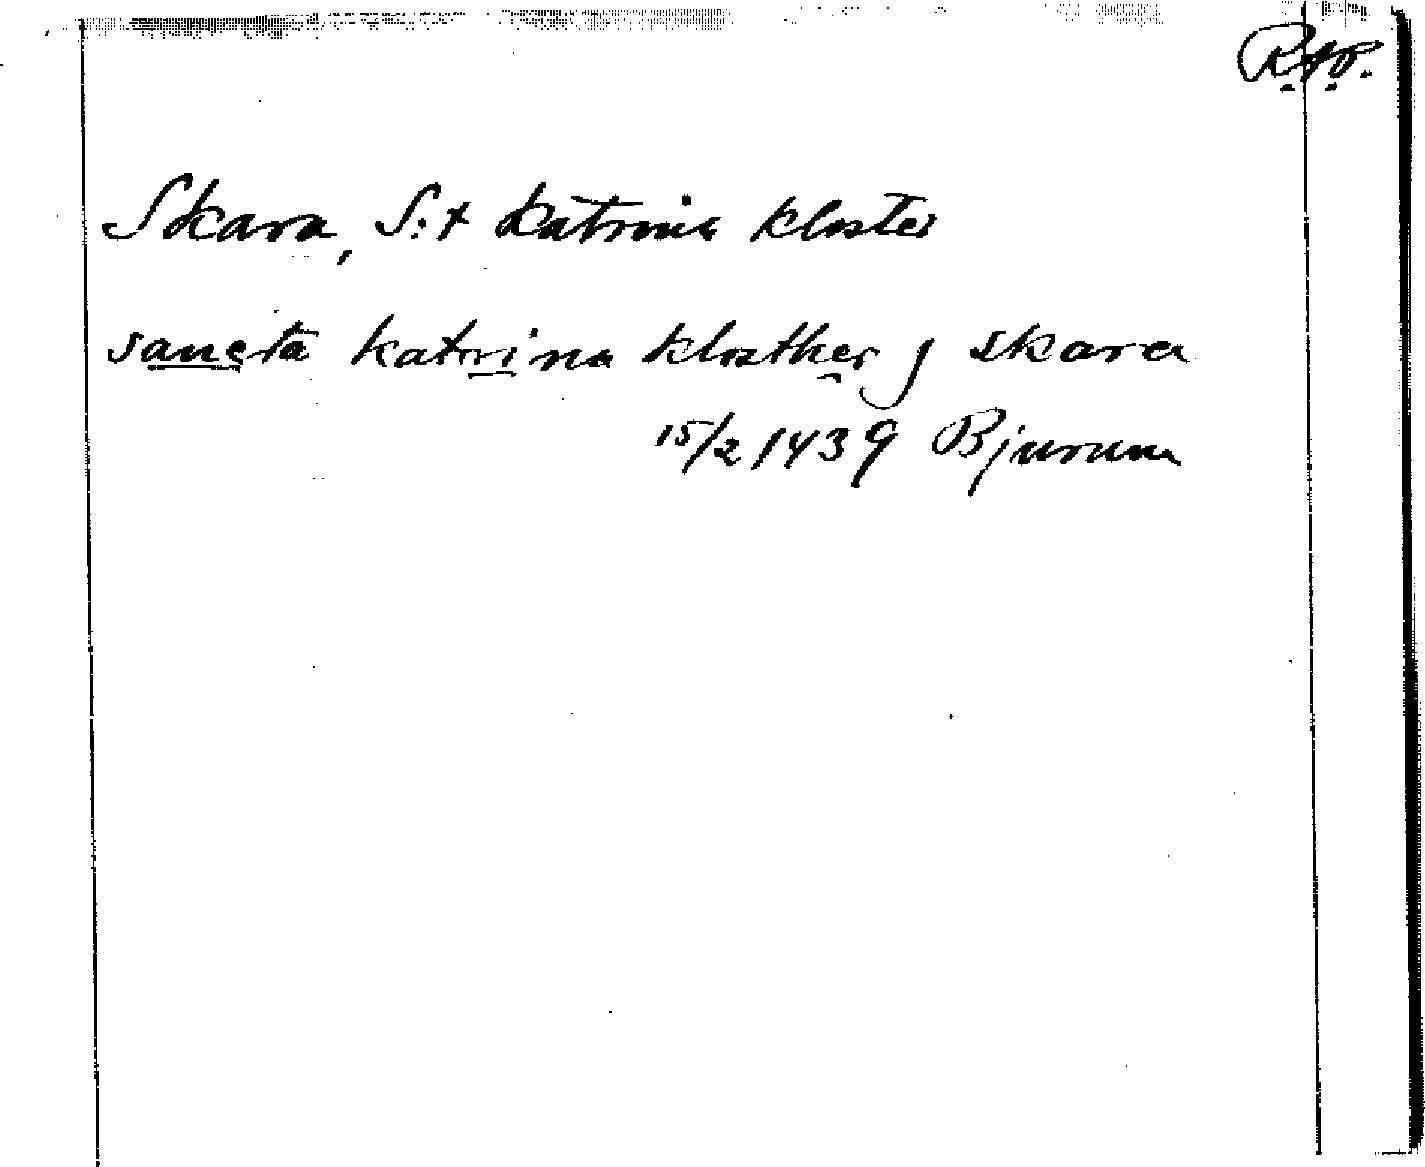 R.A.P.
Skara, S:t Katrina kloster
sancta katrina klosther j skara
15/2 1439 Bjurum